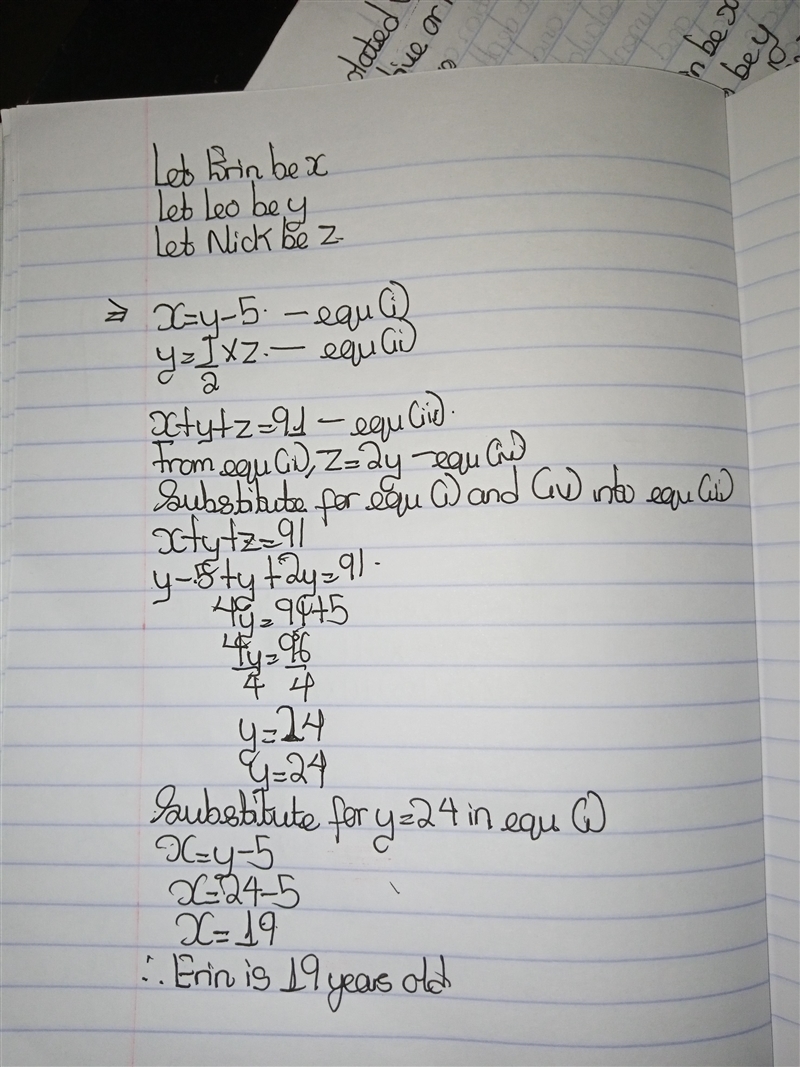 Let Erin be x
Let Leo be y
Let Nick be z
⇒ x=y-5. - equ(i)
y=1/2 × z. - equ(ii)
x+y+z=91 - equ(iii).
From equ(ii), z=2y - equ(iv)
Substitute for equ (i) and (iv) into equ (iii)
x+y+z=91
y-5+y+2y=91.
4y=91+5
4y/4=96/4
y=24
y=24
Substitute for y=24 in equ (i)
x=y-5
x=24-5
x=19
∴ Erin is 19 years old
be x
be y